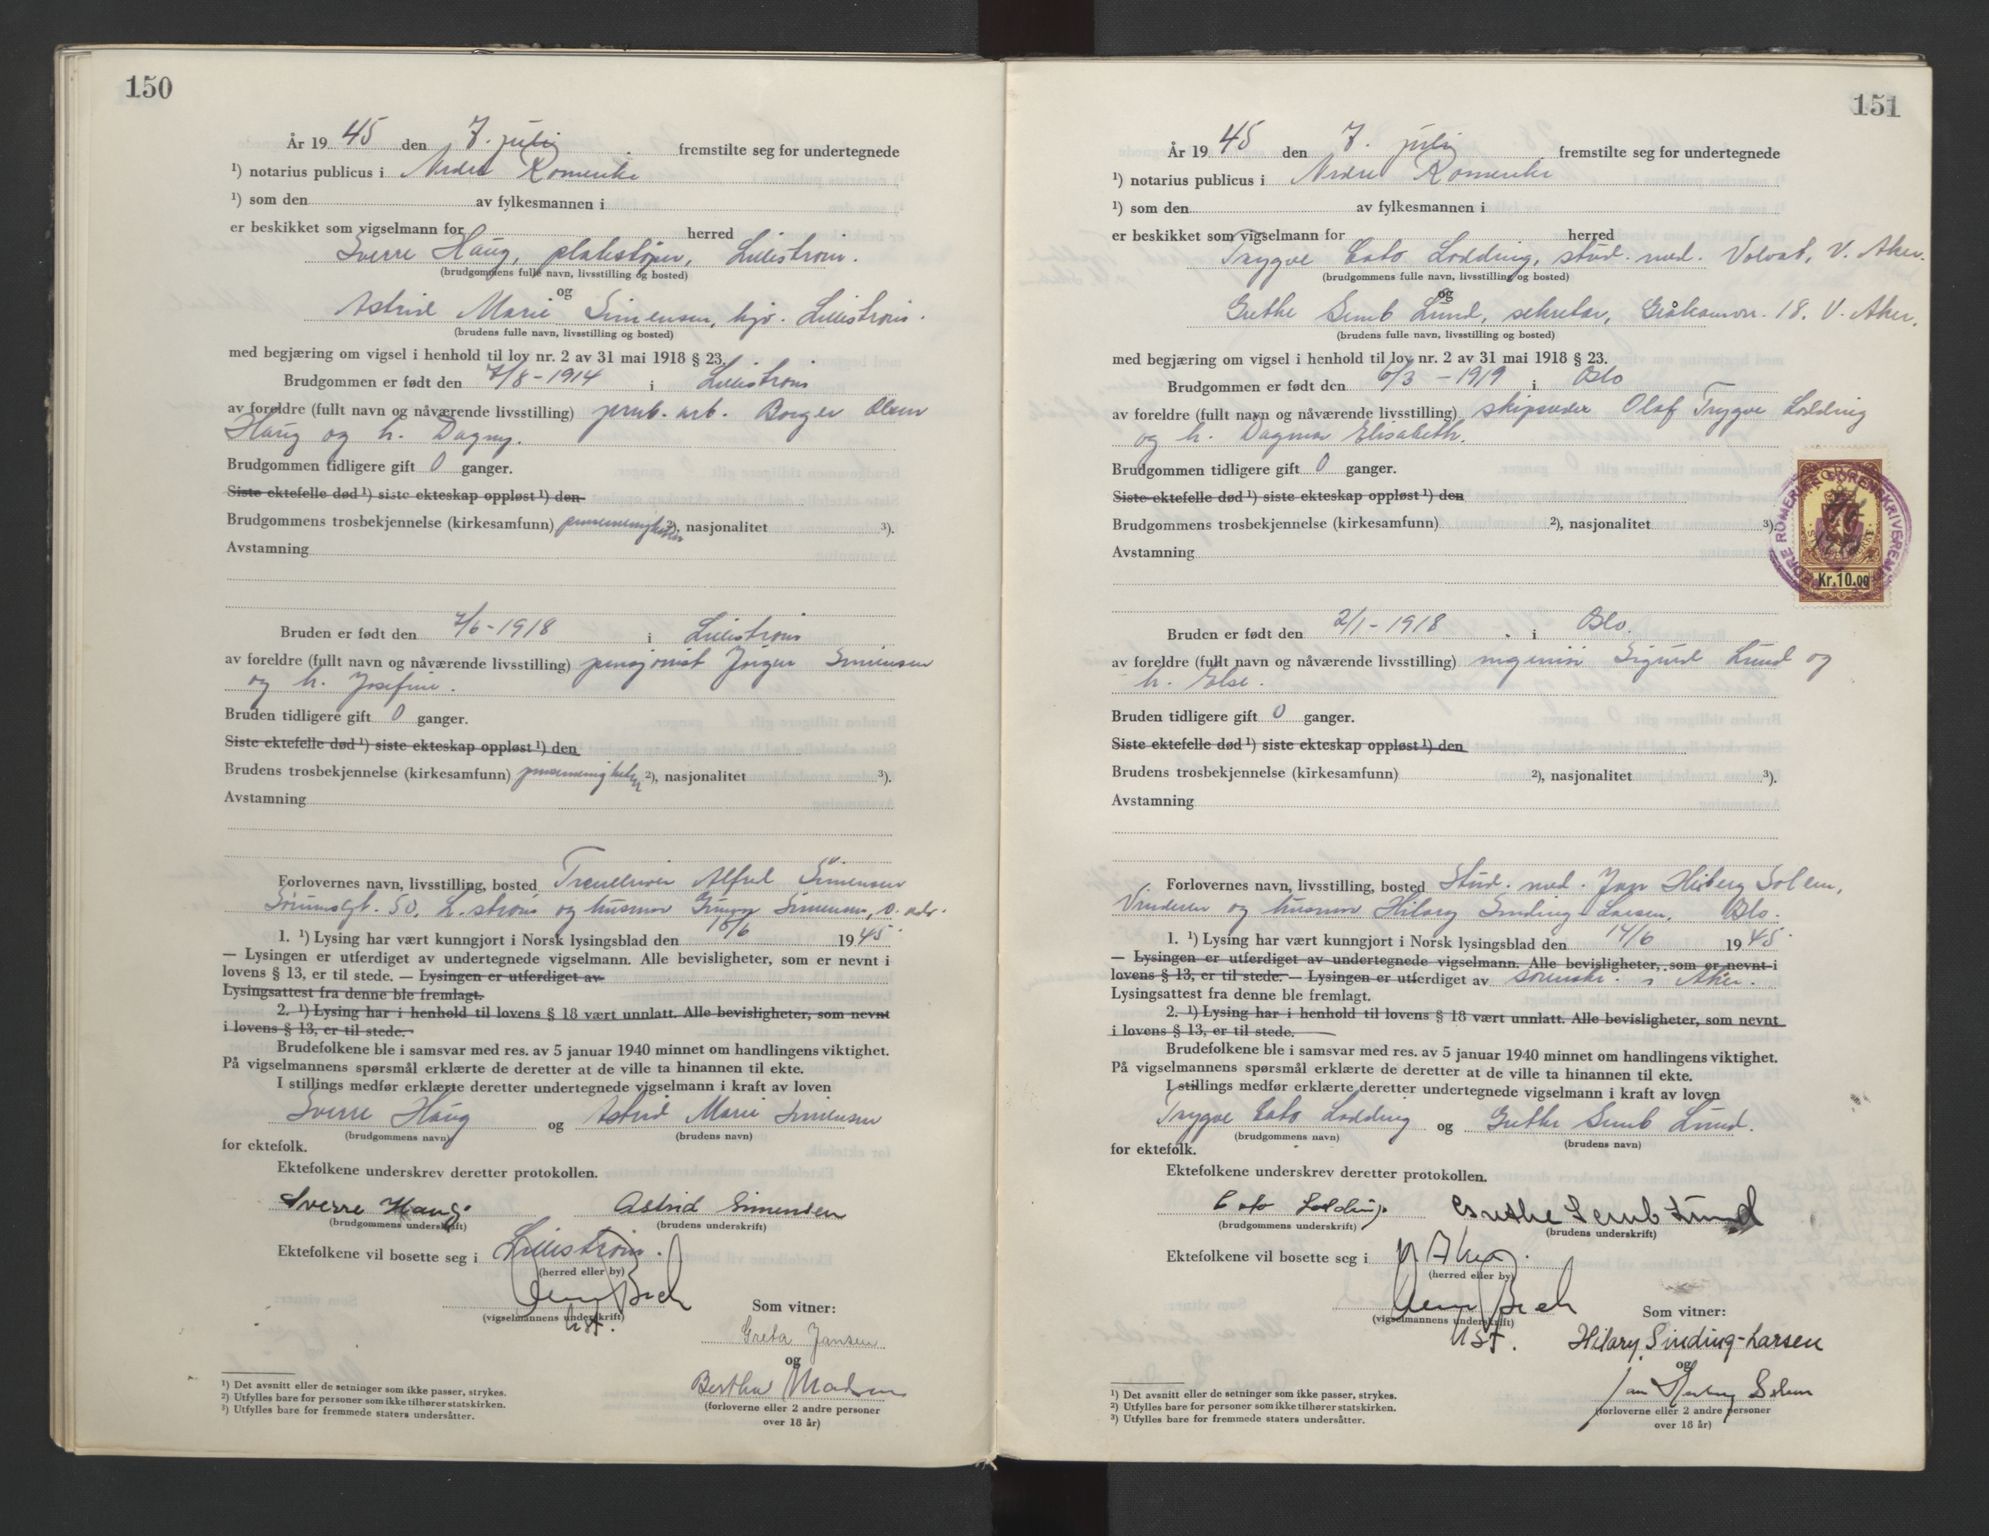 150
År 19 45 den 7. juli fremstilte seg for undertegnede
¹) notarius publicus i Nedre Romerike
¹) som den av fylkesmannen i
er beskikket som vigselmann for herred
Sverre Haug, platestøper, Lillestrøm.
(brudgommens fulle navn, livsstilling og bosted)
og
Astrid Marie Simensen, hjv. Lillestrøm.
(brudens fulle navn, livsstilling og bosted)
med begjæring om vigsel i henhold til lov nr. 2 av 31 mai 1918 § 23.
Brudgommen er født den 7/8 - 1914 i Lillestrøm
av foreldre (fullt navn og nåværende livsstilling) jernb. arb. Borger Olsen
Haug og h. Dagny.
Brudgommen tidligere gift 0 ganger.
Siste ektefelle død ¹) siste ekteskap oppløst ¹) den
Brudgommens trosbekjennelse (kirkesamfunn) pinsemenigheten ²), nasjonalitet ³).
Avstamning
Bruden er født den 7/6 - 1918 i Lillestrøm
av foreldre (fullt navn og nåværende livsstilling) pensjonist Jørgen Simensen
og h. Josefine.
Bruden tidligere gift 0 ganger.
Siste ektefelle død ¹) siste ekteskap oppløst ¹) den
Brudens trosbekjennelse (kirkesamfunn) pinsemenigheten ²), nasjonalitet ³).
Avstamning
Forlovernes navn, livsstilling, bosted Alfred Simensen
50, L.strøm og husmor Simensen, s. adr.
1. ¹) Lysing har vært kunngjort i Norsk lysingsblad den 18/6 1945
— Lysingen er utferdiget av undertegnede vigselmann. Alle bevisligheter, som er nevnt i
lovens § 13, er til stede. — Lysingen er utferdiget av
Lysingsattest fra denne ble fremlagt.
2. ¹) Lysing har i henhold til lovens § 18 vært unnlatt. Alle bevisligheter, som nevnt
i lovens § 13, er til stede.
Brudefolkene ble i samsvar med res. av 5 januar 1940 minnet om handlingens viktighet.
På vigselmannens spørsmål erklærte de deretter at de ville ta hinannen til ekte.
I stillings medfør erklærte deretter undertegnede vigselmann i kraft av loven
Sverre Haug og Astrid Marie Simensen
(brudgommens navn) (brudens navn)
for ektefolk.
Ektefolkene underskrev deretter protokollen.
Sverre Haug Astrid Simensen
(brudgommens underskrift) (brudens underskrift)
Ektefolkene vil bosette seg i Lillestrøm.
(herred eller by)
Bech
(vigselmannens underskrift) Som vitner:
Greta Jansen
og
Bertha Madsen
(forloverne eller 2 andre personer
over 18 år)
¹) Det avsnitt eller de setninger som ikke passer, strykes.
²) Utfylles bare for personer som ikke tilhører statskirken.
³) Utfylles bare for fremmede staters undersåtter.
151
År 19 45 den 7. juli fremstilte seg for undertegnede
¹) notarius publicus i Nedre Romerike
¹) som den av fylkesmannen i
er beskikket som vigselmann for herred
Trygve Cato Lodding, stud. med. Volvat, V. Aker.
(brudgommens fulle navn, livsstilling og bosted)
og
Grethe Semb Lund, sekretær, Gråkamvn. 18. V. Aker.
(brudens fulle navn, livsstilling og bosted)
med begjæring om vigsel i henhold til lov nr. 2 av 31 mai 1918 § 23.
Brudgommen er født den 6/3 - 1919 i Oslo
av foreldre (fullt navn og nåværende livsstilling) skipsreder Olaf Trygve Lodding
og h. Dagmar Elisabeth.
Brudgommen tidligere gift 0 ganger.
Siste ektefelle død ¹) siste ekteskap oppløst ¹) den
Brudgommens trosbekjennelse (kirkesamfunn) ²), nasjonalitet ³).
Avstamning
NEDRE ROMERIKE SORENSKRIVEREMBEDE
Kr. 10.00
Bruden er født den 2/1 - 1918 i Oslo.
av foreldre (fullt navn og nåværende livsstilling) ingeniør Sigurd Lund og
h. Else.
Bruden tidligere gift 0 ganger.
Siste ektefelle død ¹) siste ekteskap oppløst ¹) den
Brudens trosbekjennelse (kirkesamfunn) ²), nasjonalitet ³).
Avstamning
Forlovernes navn, livsstilling, bosted Stud. med. Jan Herberg Solem,
Vinderen og husmor Hilary Sinding-Larsen, Oslo.
1. ¹) Lysing har vært kunngjort i Norsk lysingsblad den 14/6 1945
— Lysingen er utferdiget av undertegnede vigselmann. Alle bevisligheter, som er nevnt i
lovens § 13, er til stede. — Lysingen er utferdiget av sorenskr. i Aker.
Lysingsattest fra denne ble fremlagt.
2. ¹) Lysing har i henhold til lovens § 18 vært unnlatt. Alle bevisligheter, som nevnt
i lovens § 13, er til stede.
Brudefolkene ble i samsvar med res. av 5 januar 1940 minnet om handlingens viktighet.
På vigselmannens spørsmål erklærte de deretter at de ville ta hinannen til ekte.
I stillings medfør erklærte deretter undertegnede vigselmann i kraft av loven
Trygve Cato Lodding og Grethe Semb Lund.
(brudgommens navn) (brudens navn)
for ektefolk.
Ektefolkene underskrev deretter protokollen.
Cato Lodding Grethe Semb Lund
(brudgommens underskrift) (brudens underskrift)
Ektefolkene vil bosette seg i V. Aker.
(herred eller by)
Bech
(vigselmannens underskrift) Som vitner:
Hilary Sinding-Larsen
og
Jan Herberg Solem
(forloverne eller 2 andre personer
over 18 år)
¹) Det avsnitt eller de setninger som ikke passer, strykes.
²) Utfylles bare for personer som ikke tilhører statskirken.
³) Utfylles bare for fremmede staters undersåtter.